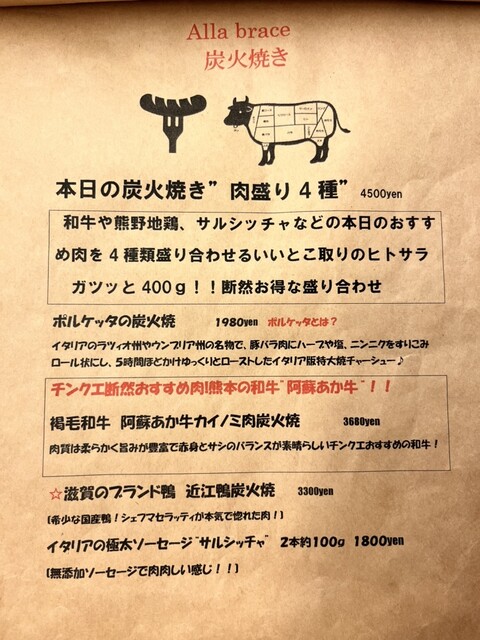 Alla brace
炭火焼き
本日の炭火焼き”肉盛り4種” 4500yen
和牛や熊野地鶏、サルシッチャなどの本日のおすす
め肉を4種類盛り合わせるいいとこ取りのヒトサラ
ガツッと400g！！断然お得な盛り合わせ
ポルケッタの炭火焼 1980yen ポルケッタとは？
イタリアのラツィオ州やウンブリア州の名物で、豚バラ肉にハーブや塩、ニンニクをすりこみ
ロール状にし、5時間ほどかけゆっくりとローストしたイタリア版特大焼チャーシュー♪
チンクエ断然おすすめ肉!熊本の和牛”阿蘇あか牛”！！
褐毛和牛 阿蘇あか牛カイノミ肉炭火焼 3680yen
肉質は柔らかく旨みが豊富で赤身とサシのバランスが素晴らしいチンクエおすすめの和牛！
☆滋賀のブランド鴨 近江鴨炭火焼 3300yen
(希少な国産鴨！シェフマセラッティが本気で惚れた肉！)
イタリアの極太ソーセージ”サルシッチャ” 2本約100g 1800yen
(無添加ソーセージで肉肉しい感じ！！)